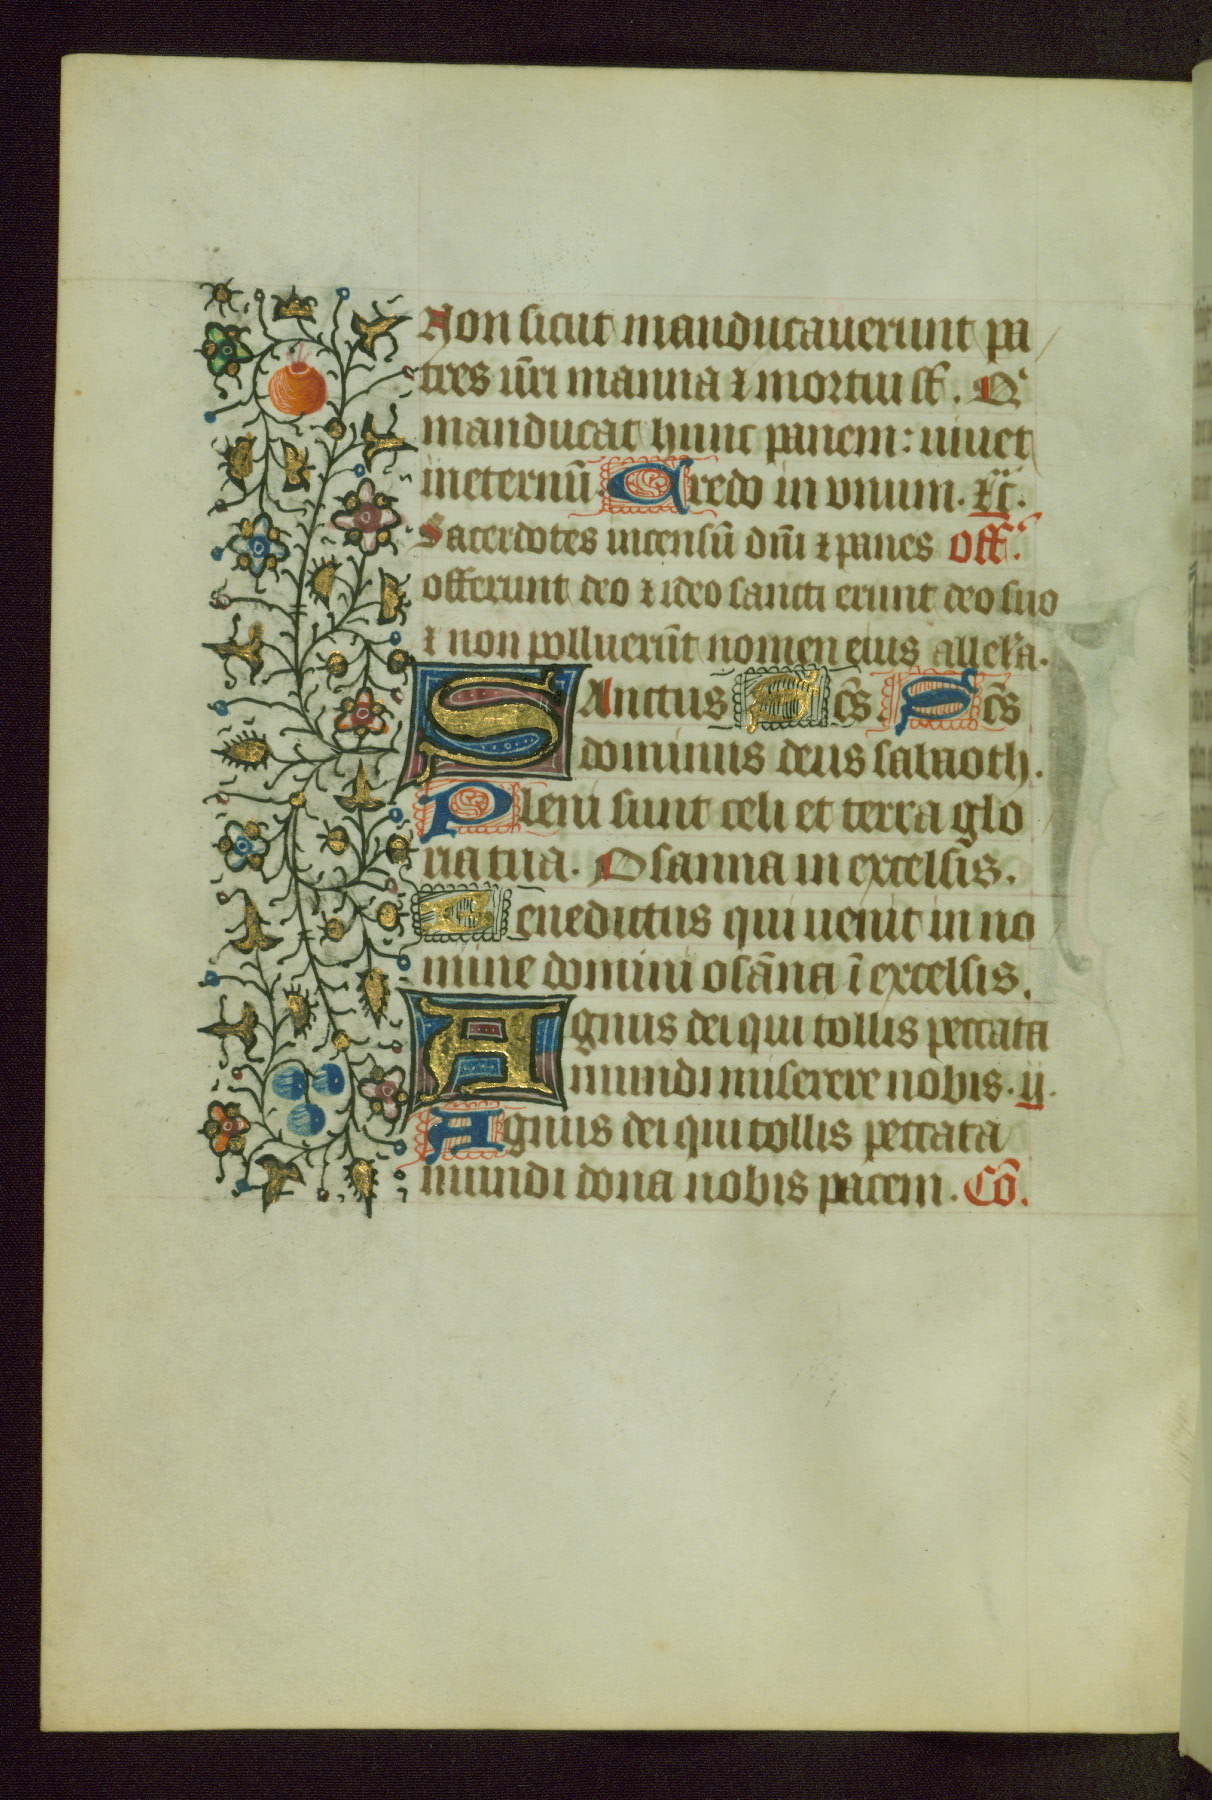 Non sicut manducauerunt pa
tres ur̄i manna ⁊ mortui st̄. Qⁱ
manducat hunc panem: uiuet
ineternū. Credo in vnum. ⁊c̄.
Sacerdotes incensū dn̄i ⁊ panes Off̄.
offerunt deo ⁊ ideo sancti erunt deo suo
⁊ non polluerūt nomen eius allel'a.
SAnctus Sc̄s. Sc̄s
dominus deus sabaoth.
Pleni sunt celi et terra glo
ria tua. Osanna in excelsis.
Benedictus qui uenit in no
mine domini osāna ī excelsis.
Agnus dei qui tollis peccata
mundi miserere nobis. ij.
Agnus dei qui tollis peccata
mundi dona nobis pacem. Cō.